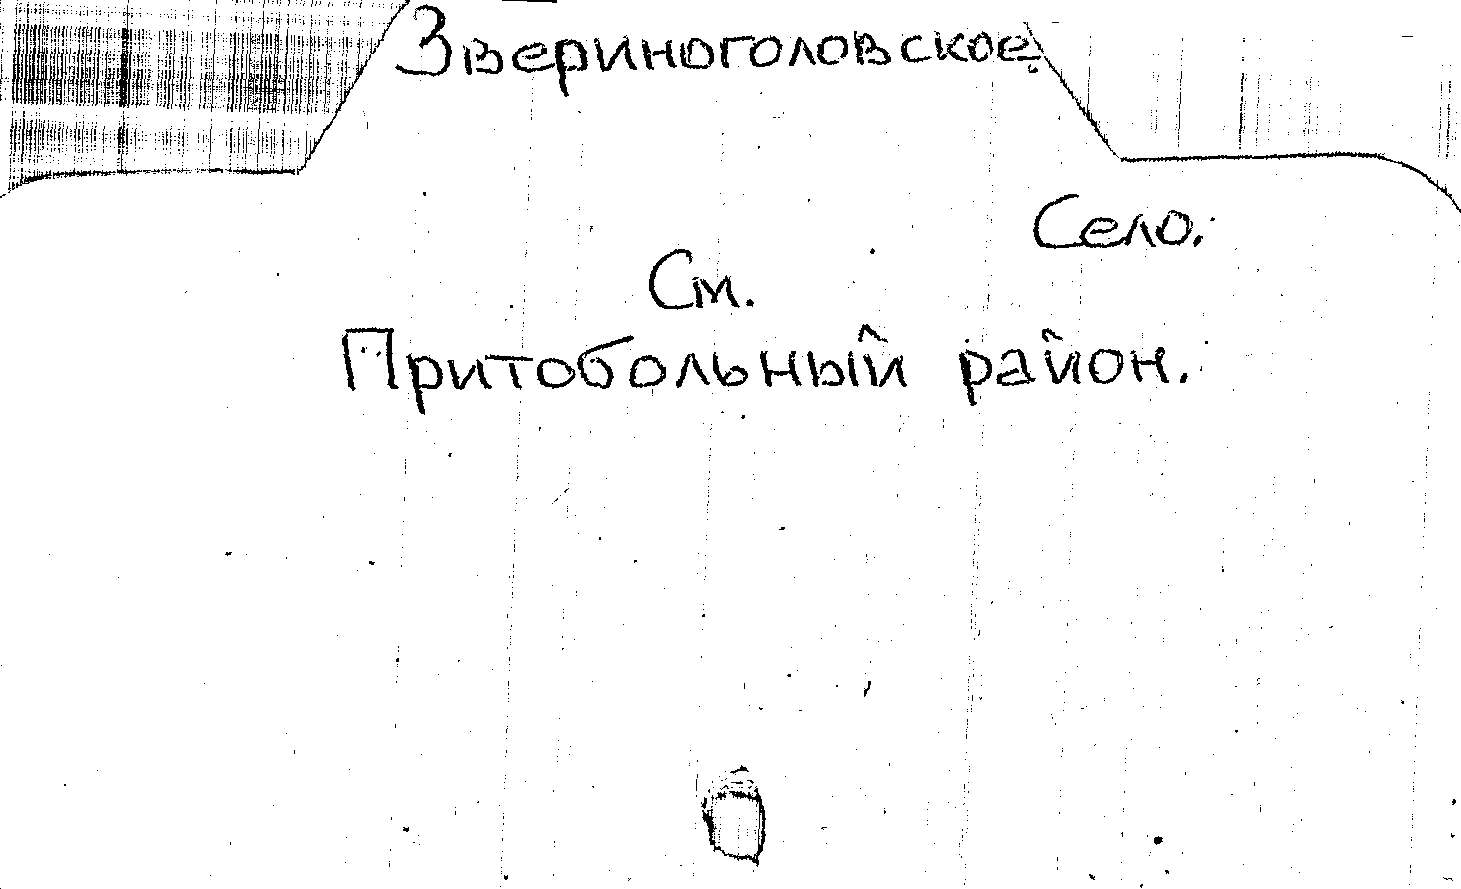 Звериноголовское
Село.
См.
Притобольный район.